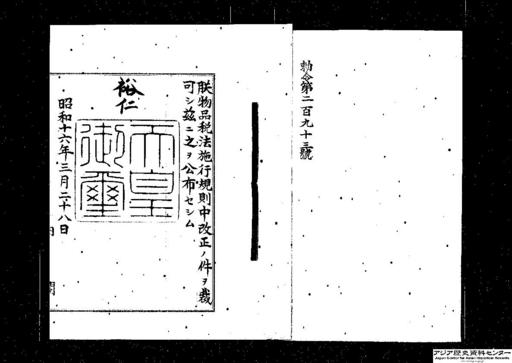 勅令第二百九十三號
朕物品税法施行規則中改正ノ件ヲ裁
可シ茲ニ之ヲ公布セシム
裕仁
天皇
御璽
昭和十六年三月二十八日
内
閣
アジア歴史資料センター
Japan Center for Asian Historical Records